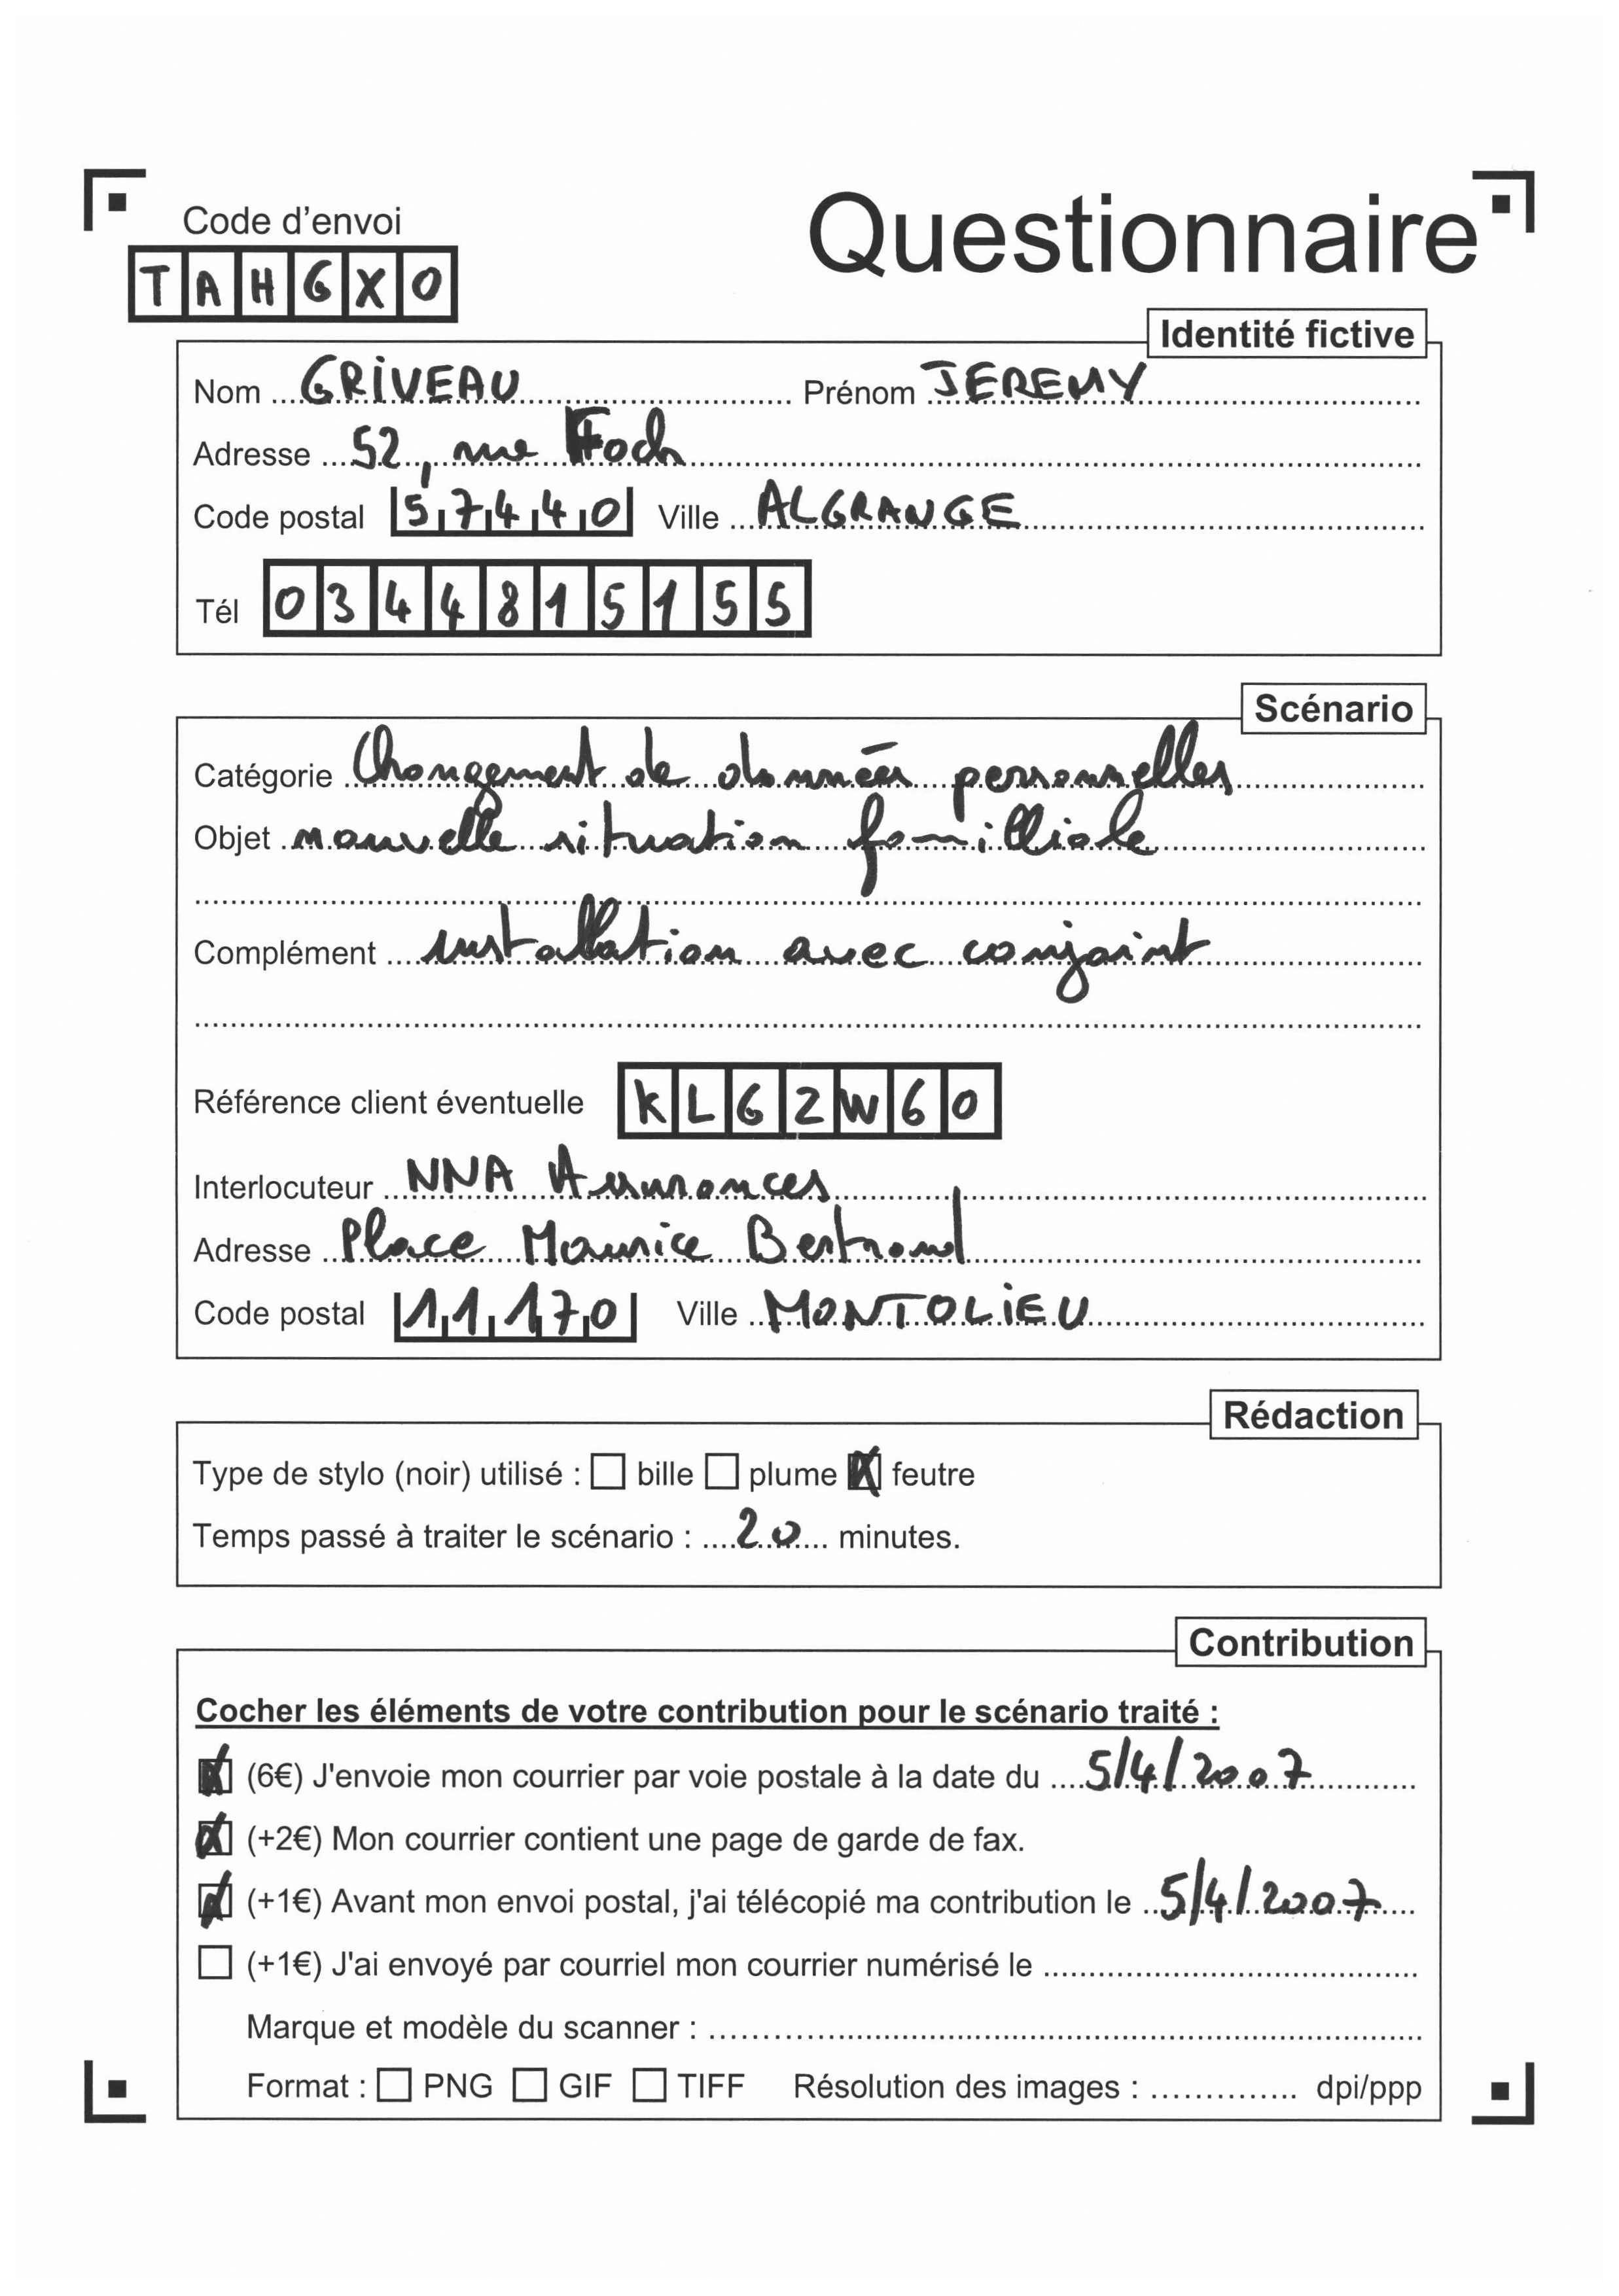 Code d'envoi
Questionnaire
TAHGXO
Identité fictive
Nom GRIVEAU Prénom JEREMY
Adresse 52, rue Foch
Code postal 57440 Ville ALGRANGE
Tél 0344815155
Scénario
Catégorie Changement de données personnelles
Objet nouvelle situation familliale
Complément installation avec conjoint
Référence client éventuelle KL62W60
Interlocuteur NNA Assurances
Adresse Place Maurice Bertrand
Code postal 11170 Ville MONTOLIEU
Rédaction
Type de stylo (noir) utilisé : bille plume feutre
Temps passé à traiter le scénario : 20 minutes.
Contribution
Cocher les éléments de votre contribution pour le scénario traité :
(6€) J'envoie mon courrier par voie postale à la date du 5/4/2007
(+2€) Mon courrier contient une page de garde de fax.
(+1€) Avant mon envoi postal, j'ai télécopié ma contribution le 5/4/2007
(+1€) J'ai envoyé par courriel mon courrier numérisé le
Marque et modèle du scanner :
Format : PNG GIF TIFF Résolution des images : dpi/ppp